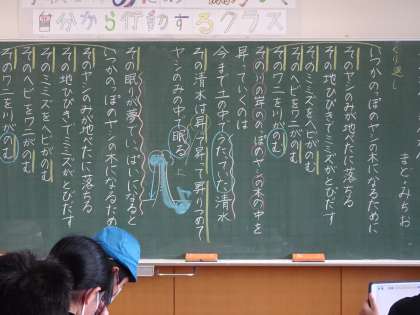 分から行動するクラス
くり返し
まど・みちお
いつかのっぽのヤシの木になるために
そのヤシのみが地べたに落ちる
その地ひびきでミミズがとびだす
そのミミズをヘビがのむ
そのヘビをワニがのむ
そのワニを川がのむ
その川の岸ののっぽのヤシの木の中を
昇っていくのは
今まで土の中でうたっていた清水
その清水は昇って昇って昇りつめて
ヤシのみの中で眠る
その眠りが夢でいっぱいになると
いつかのっぽのヤシの木になるために
そのヤシのみが地べたに落ちる
その地ひびきでミミズがとびだす
そのミミズをヘビがのむ
そのヘビをワニがのむ
そのワニを川がのむ